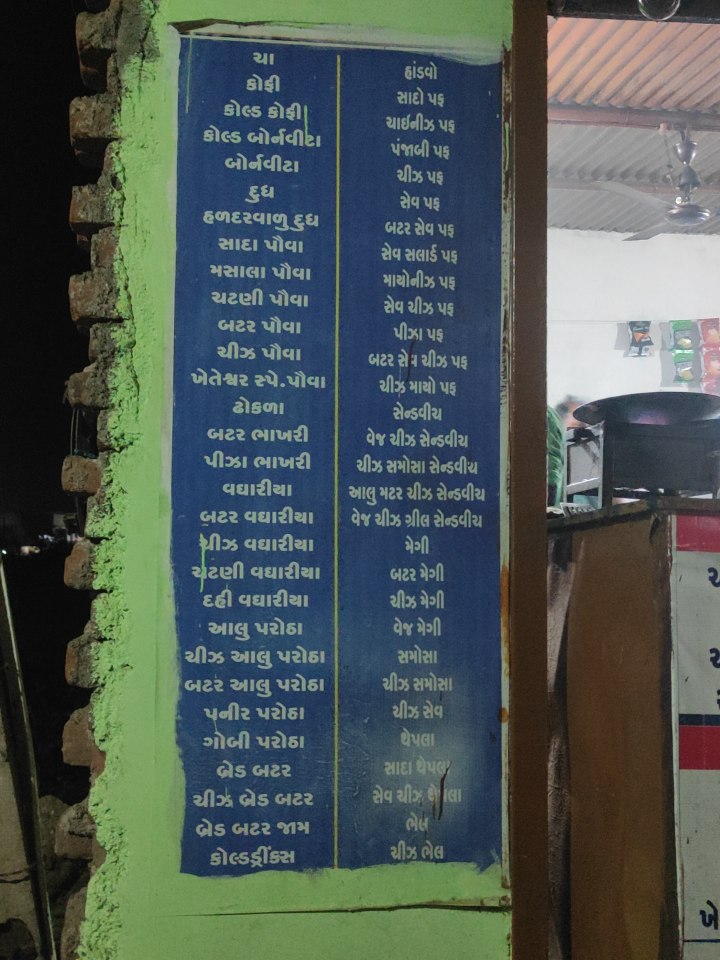 ચા
કોફી
કોલ્ડ કોફી
કોલ્ડ બોર્નવીટા
બોર્નવીટા
દુધ
હળદરવાળુ દુધ
સાદા પૌવા
મસાલા પૌવા
ચટણી પૌવા
બટર પૌવા
ચીઝ પૌવા
ખેતેશ્વર સ્પે.પૌવા
ઢોકળા
બટર ભાખરી
પીઝા ભાખરી
વઘારીયા
બટર વઘારીયા
ચીઝ વઘારીયા
ચટણી વઘારીયા
દહી વઘારીયા
આલુ પરોઠા
ચીઝ આલુ પરોઠા
બટર આલુ પરોઠા
પનીર પરોઠા
ગોબી પરોઠા
બ્રેડ બટર
ચીઝ બ્રેડ બટર
બ્રેડ બટર જામ
કોલ્ડડ્રીંક્સ
હાંડવો
સાદો પફ
ચાઇનીઝ પફ
પંજાબી પફ
ચીઝ પફ
સેવ પફ
બટર સેવ પફ
સેવ સલાર્ડ પફ
માયોનીઝ પફ
સેવ ચીઝ પફ
પીઝા પફ
બટર સેવ ચીઝ પફ
ચીઝ માયો પફ
સેન્ડવીચ
વેજ ચીઝ સેન્ડવીચ
ચીઝ સમોસા સેન્ડવીચ
આલુ મટર ચીઝ સેન્ડવીચ
વેજ ચીઝ ગ્રીલ સેન્ડવીચ
મેગી
બટર મેગી
ચીઝ મેગી
વેજ મેગી
સમોસા
ચીઝ સમોસા
ચીઝ સેવ
થેપલા
સાદા થેપલા
સેવ ચીઝ થેપલા
ભેલ
ચીઝ ભેલ